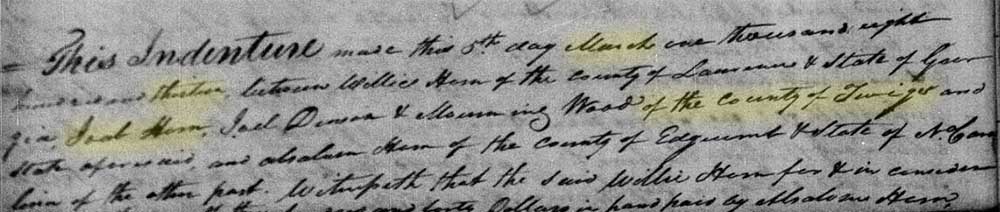 = This Indenture made this 5th day March one thousand eight
hundred and thirteen, between Willie Horn of the county of Laurence & State of Geor
gia, Joab Horn, Joel Denson & Mourning Wood of the county of Twiggs and
State aforesaid, and Absalum Horn of the county of Edgcumb & State of No. Caro
lina of the other part. Witnesseth that the said Willie Horn for & in consider
of the and forty Dollars in hand paid by Absalome Horn